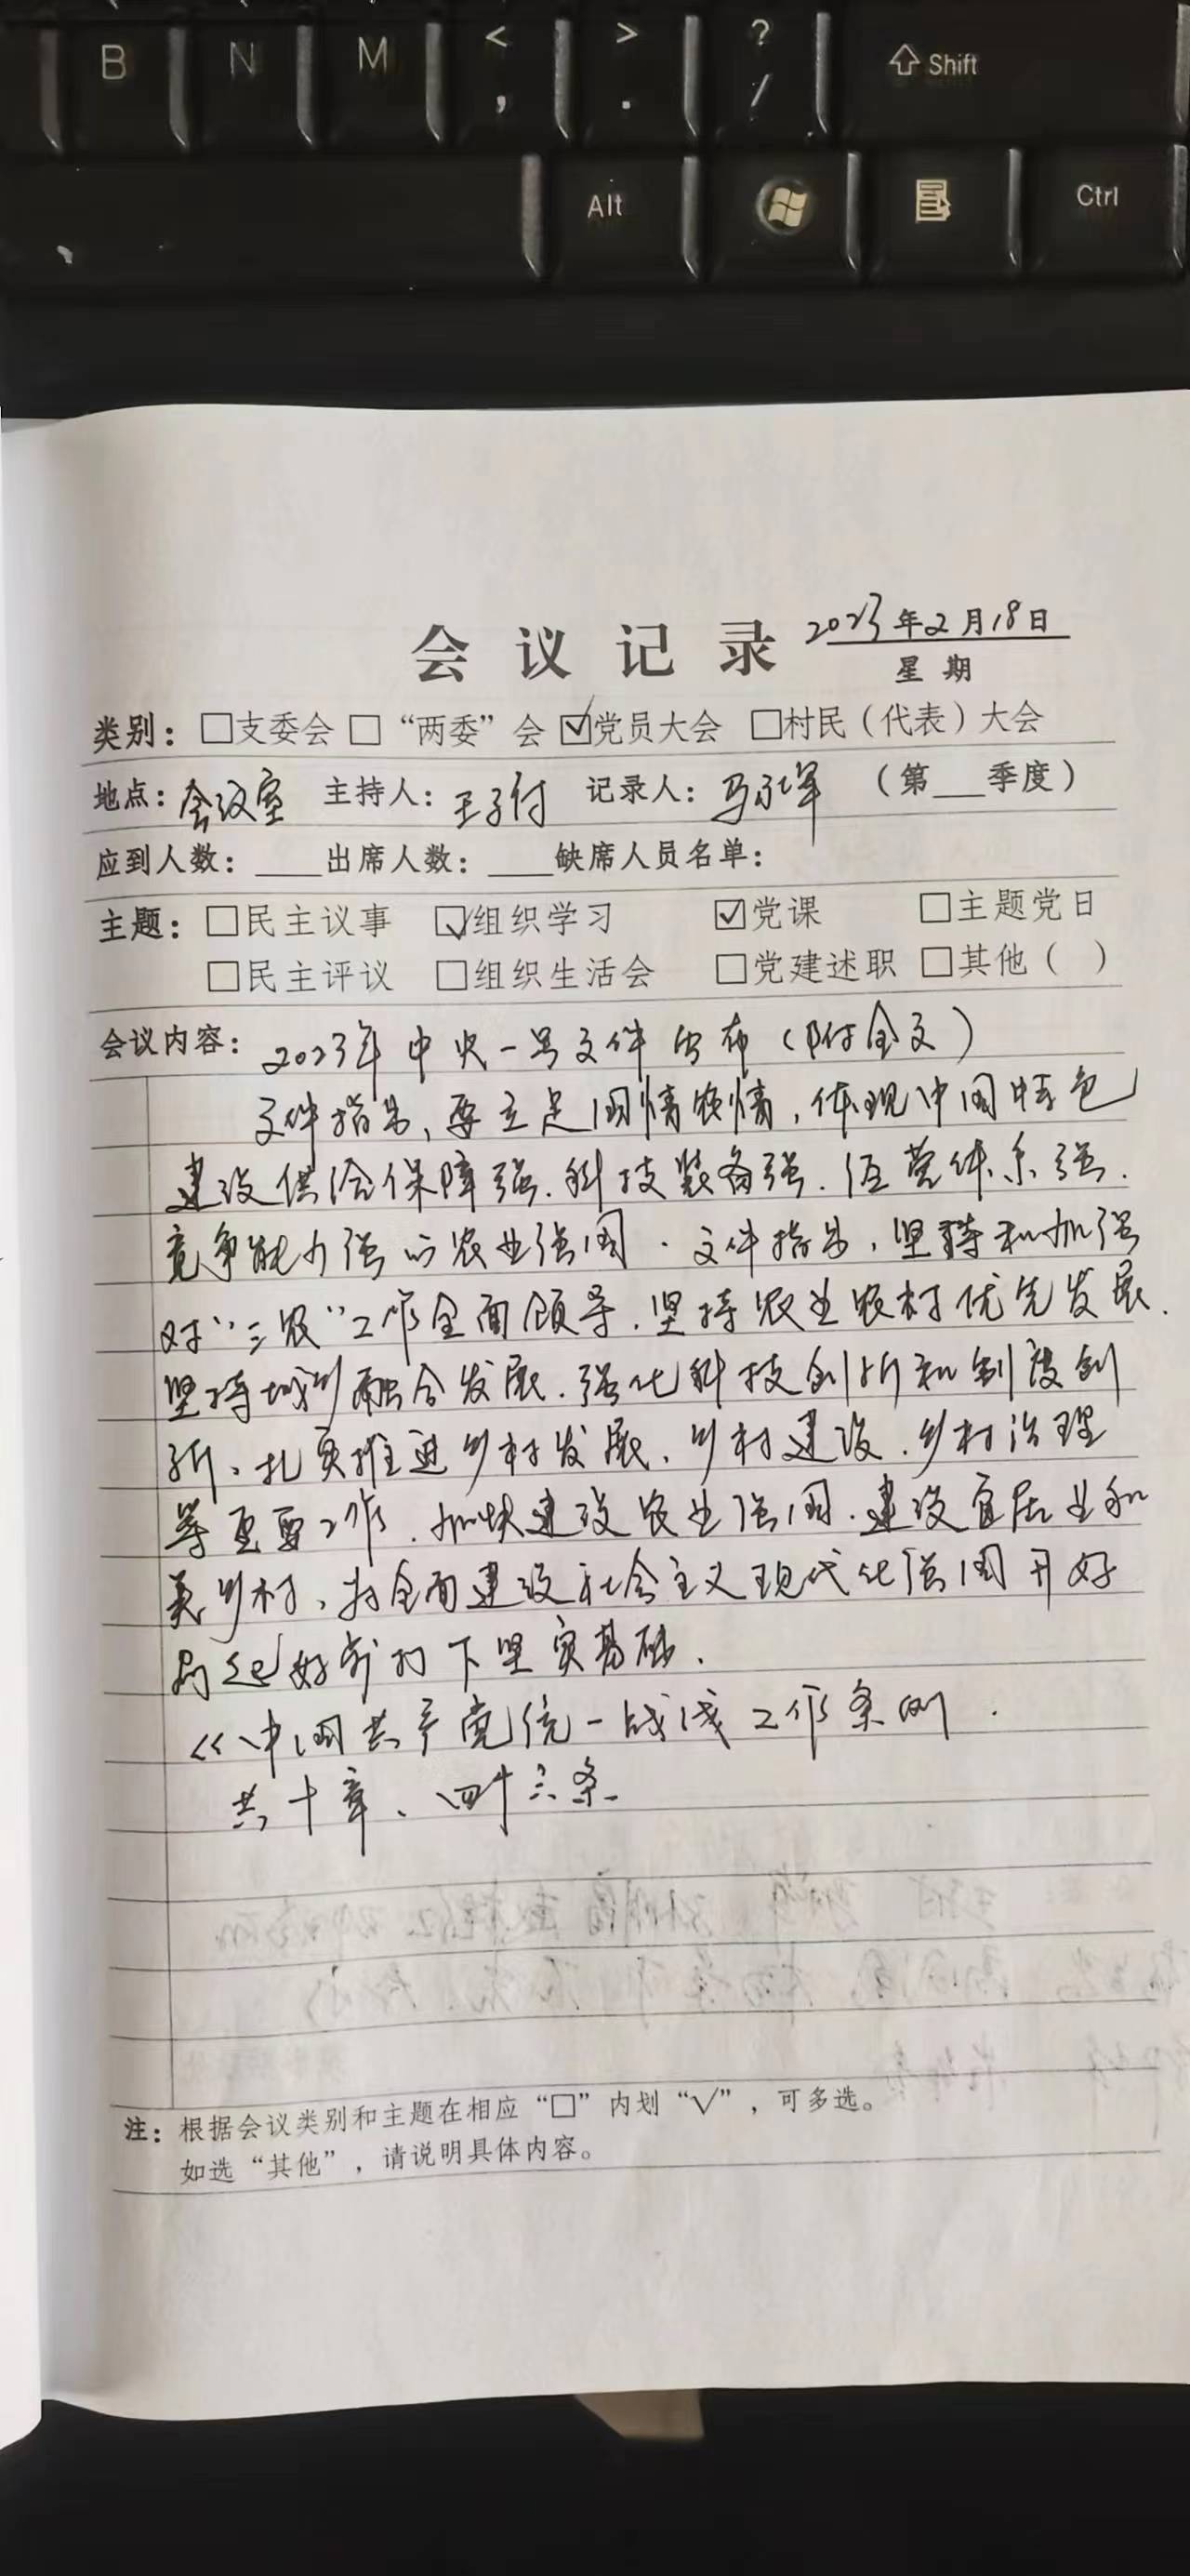 B N M < , > . ? / Shift
Alt Ctrl
会议记录 2023年2月18日
星期
类别：□支委会 □“两委”会 ☑党员大会 □村民（代表）大会
地点：会议室 主持人：王子付 记录人：马 （第___季度）
应到人数：____出席人数：____缺席人员名单：
主题：□民主议事 ☑组织学习 ☑党课 □主题党日
□民主评议 □组织生活会 □党建述职 □其他（ ）
会议内容：2023年中央一号文件发布（附全文）
文件指出，要立足国情农情，体现中国特色
建设供给保障强、科技装备强、经营体系强、
竞争能力强的农业强国．文件指出，坚持和加强
对“三农”工作全面领导、坚持农业农村优先发展、
坚持城乡融合发展、强化科技创新和制度创
新、扎实推进乡村发展、乡村建设、乡村治理
等重要工作、加快建设农业强国、建设宜居业和
美乡村、为全面建设社会主义现代化强国开好
局起好步打下坚实基础、
《中国共产党统一战线工作条例．
共十章、四十六条
注：根据会议类别和主题在相应“□”内划“√”，可多选。
如选“其他”，请说明具体内容。